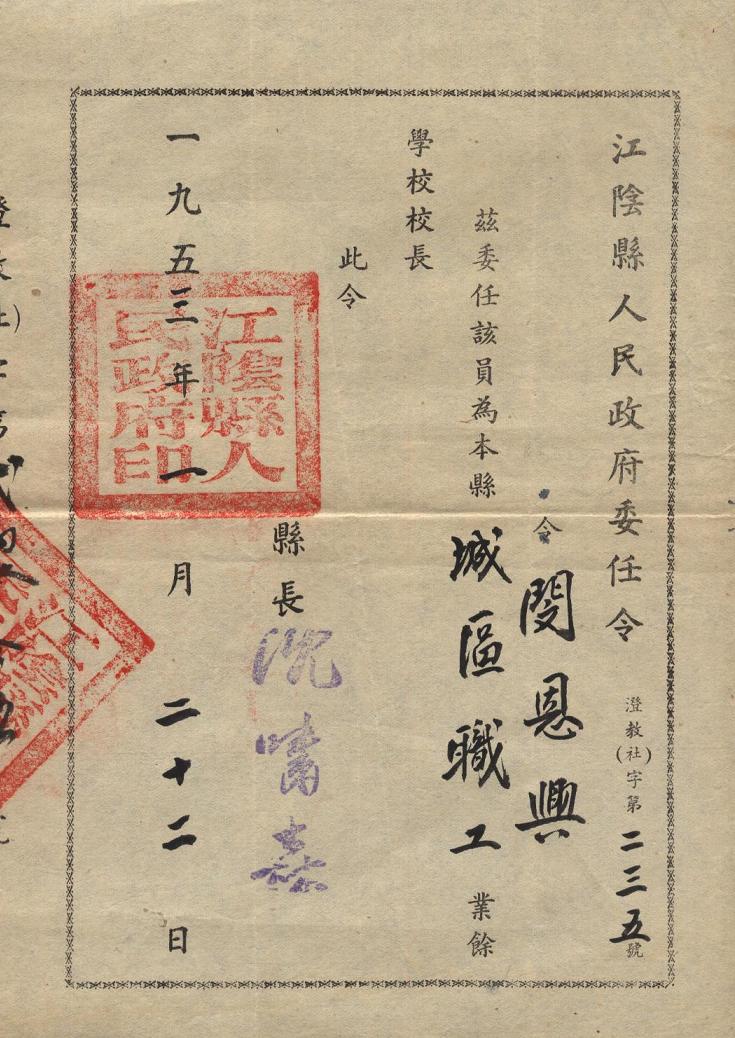 江陰縣人民政府委任令 澄教(社)字第二三五號
令 閔恩興
茲委任該員為本縣城區職工業餘
學校校長
此令
縣長 沈嘯
一九五三年一月二十二日
江陰縣人
民政府印